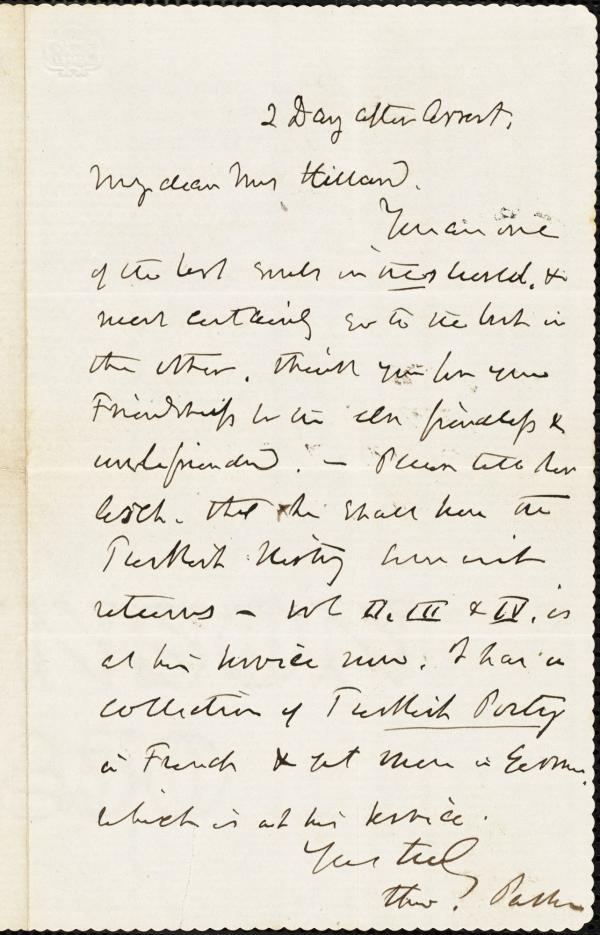 2 Day after Arrest.
My dear Mrs Hillard.
You are one
of the best souls in this world, &
most certainly go to the best in
the other. Thank you for your
Friendship to the else friendless &
unbefriended. — Please tell
that he shall have the
Turkish HistorySsoon as it
returns — vol II. III & IV. is
at his service now. I have a
collection of Turkish Poetry
in French & yet more in German.
which is at his service.
Yours truly
Theo. Parker